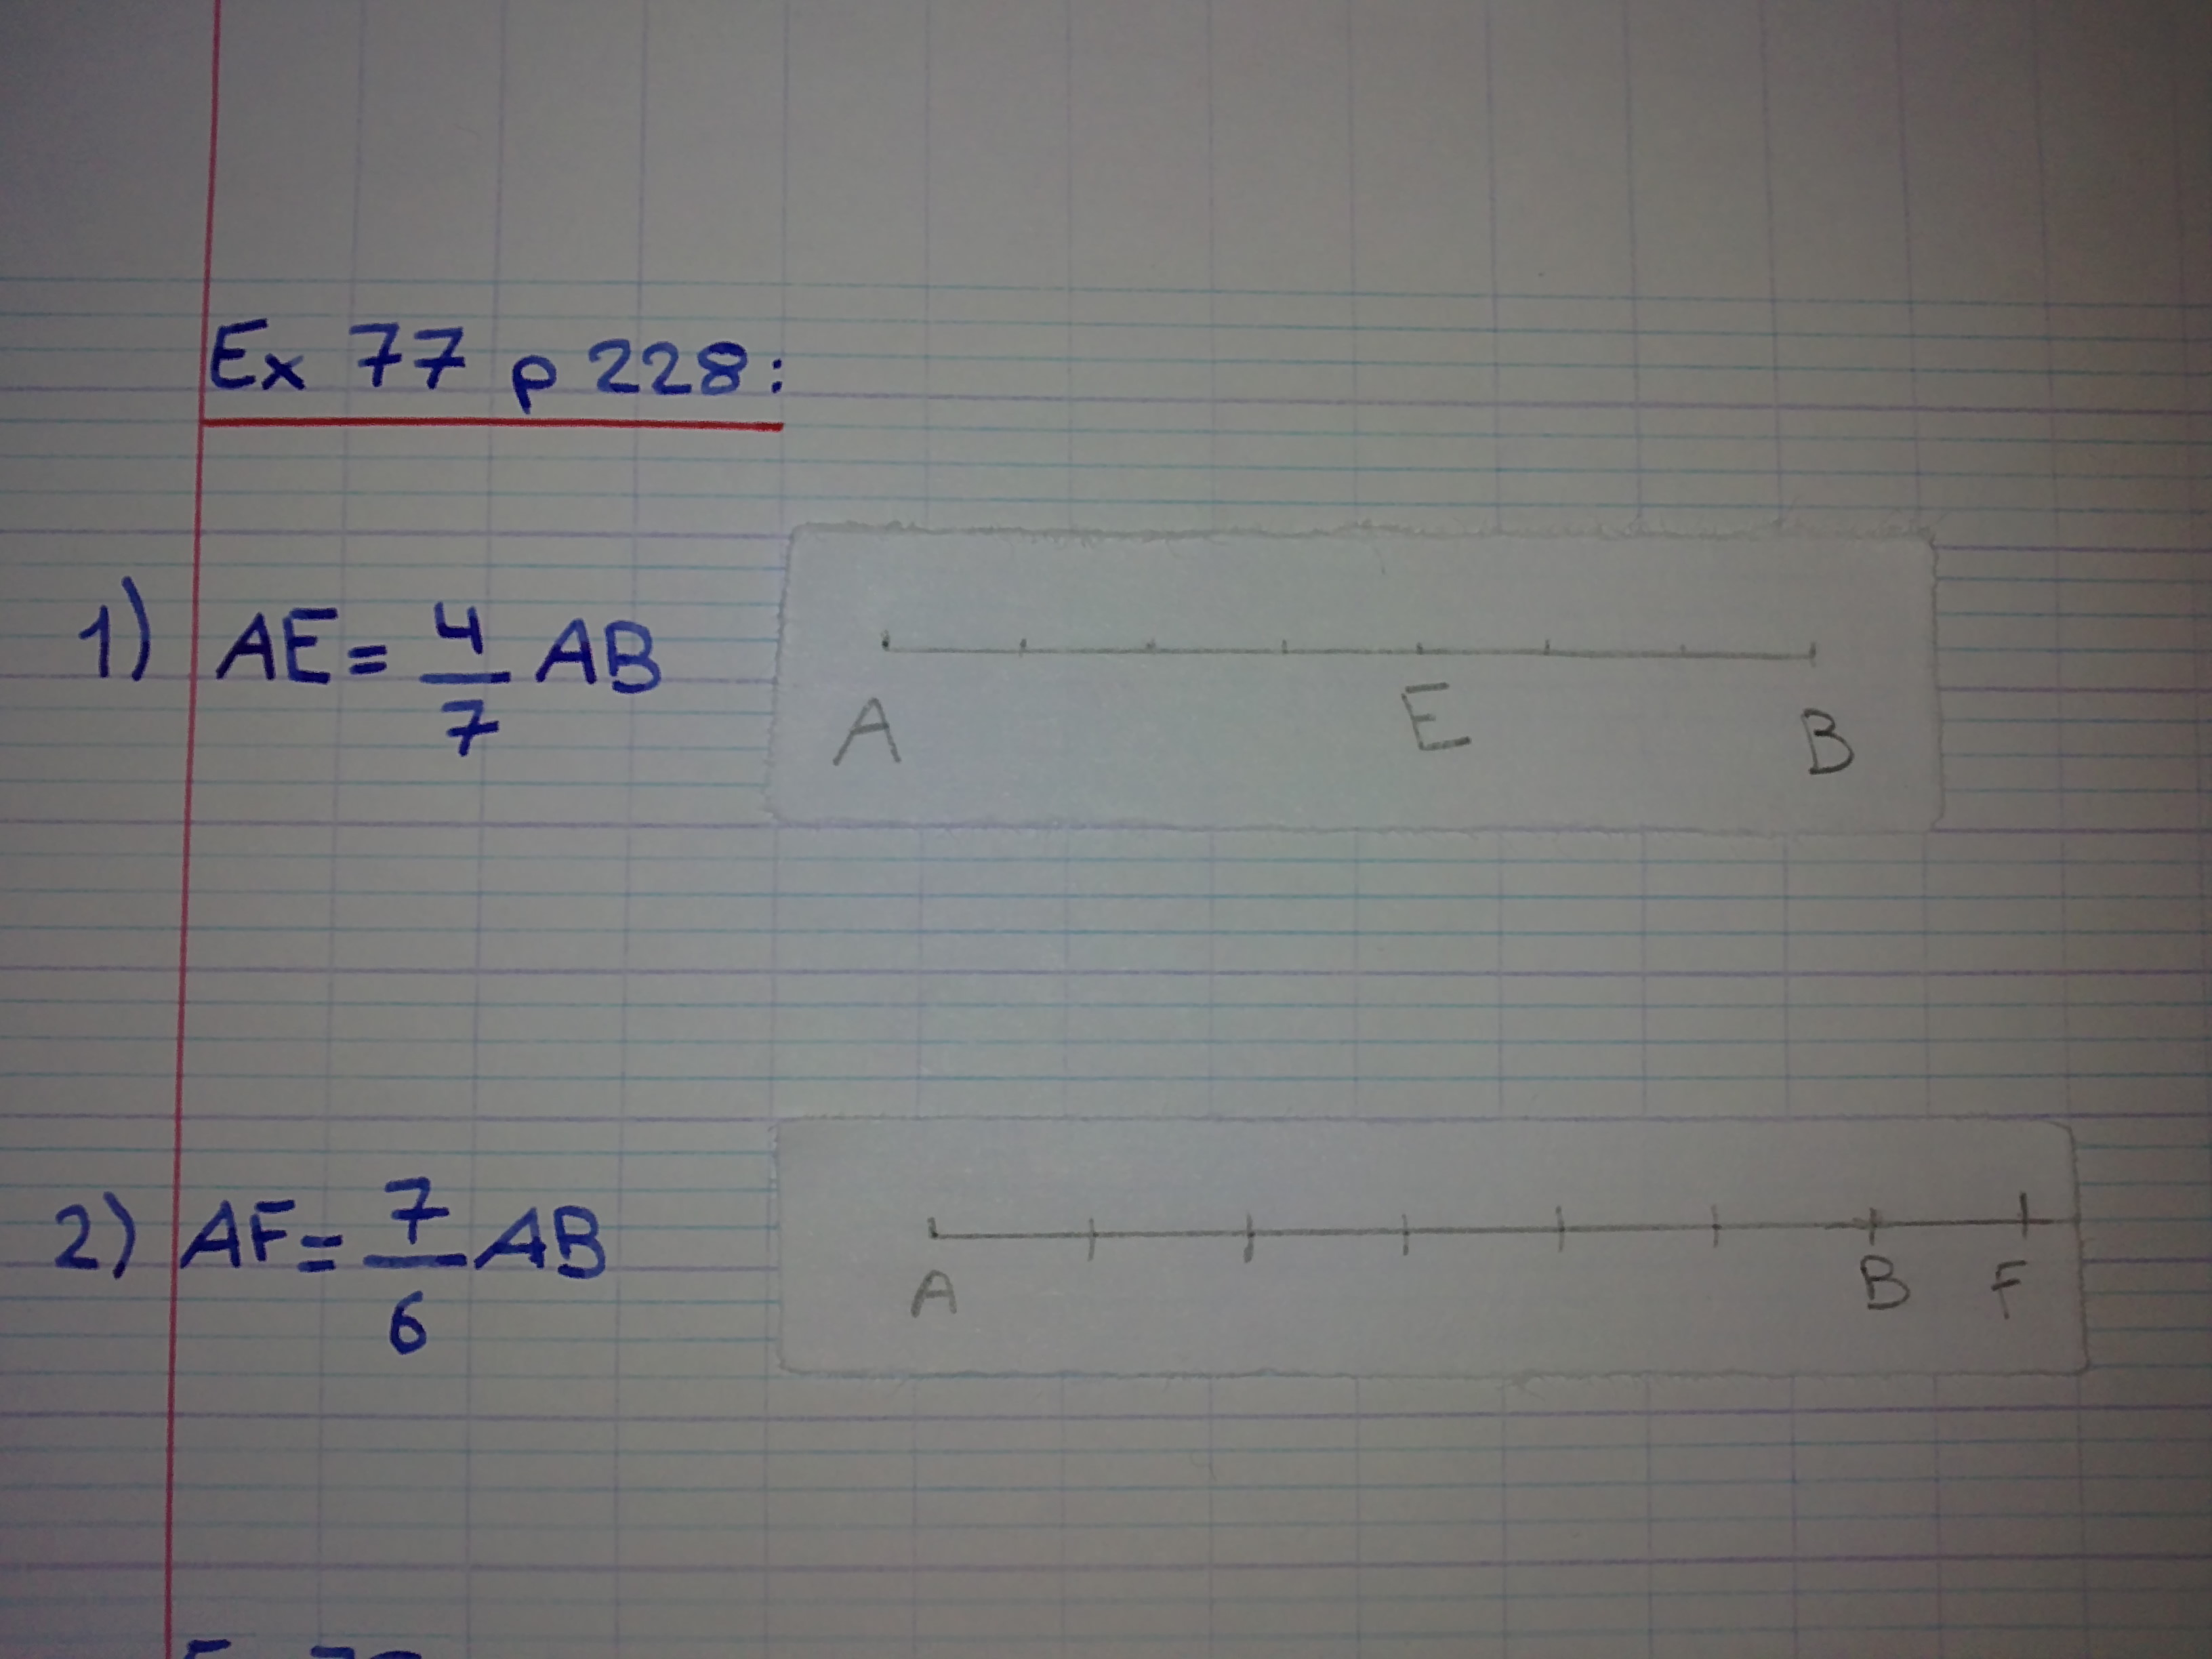 Ex 77 p 228:
1) AE = 4/7 AB
A E B
2) AF = 7/6 AB
A B F